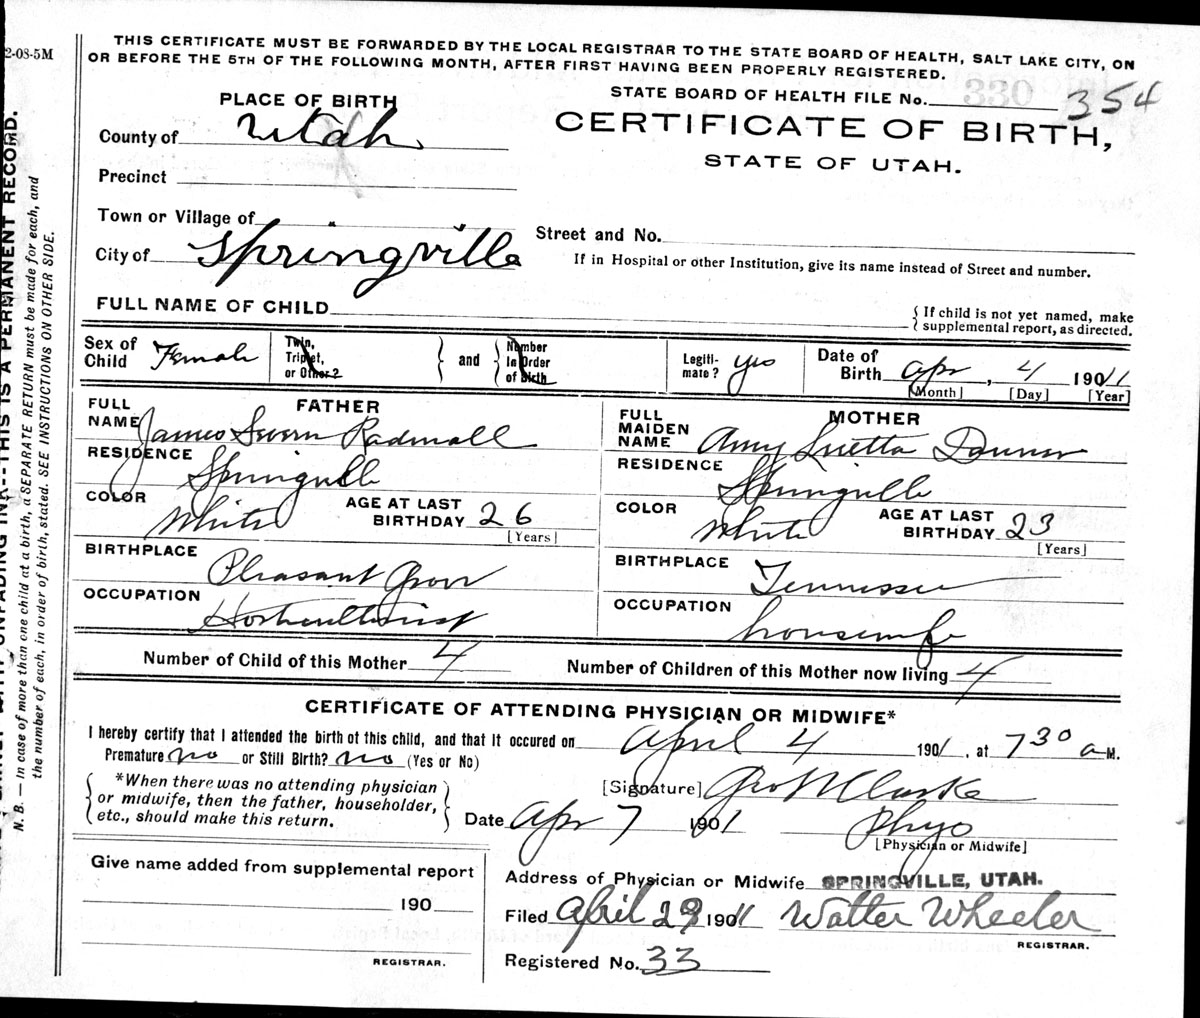 2-08-5M
THIS CERTIFICATE MUST BE FORWARDED BY THE LOCAL REGISTRAR TO THE STATE BOARD OF HEALTH, SALT LAKE CITY, ON
OR BEFORE THE 5TH OF THE FOLLOWING MONTH, AFTER FIRST HAVING BEEN PROPERLY REGISTERED.
STATE BOARD OF HEALTH FILE No. 330 354
PLACE OF BIRTH
CERTIFICATE OF BIRTH,
STATE OF UTAH.
County of Utah
Precinct
Town or Village of
Street and No.
City of Springville
If in Hospital or other Institution, give its name instead of Street and number.
FULL NAME OF CHILD
{ If child is not yet named, make
{ supplemental report, as directed.
Sex of Child Female
Twin, Triplet, or Other?
and
Number in Order of Birth
Legiti-mate? yes
Date of Birth Apr, 4 19011
[Month] [Day] [Year]
FATHER
FULL NAME James Severn Radmall
RESIDENCE Springville
COLOR White
AGE AT LAST BIRTHDAY 26
[Years]
BIRTHPLACE Pleasant Grove
OCCUPATION Horticulturist
MOTHER
FULL MAIDEN NAME Amy Luetta
RESIDENCE Springville
COLOR White
AGE AT LAST BIRTHDAY 23
[Years]
BIRTHPLACE Tennessee
OCCUPATION housewife
Number of Child of this Mother 4
Number of Children of this Mother now living 4
CERTIFICATE OF ATTENDING PHYSICIAN OR MIDWIFE*
I hereby certify that I attended the birth of this child, and that it occured on April 4 1901, at 7 30 a M.
Premature no or Still Birth? no (Yes or No)
*When there was no attending physician
or midwife, then the father, householder,
etc., should make this return.
[Signature] Geo Clarke
Date Apr 7 1901 Phys
[Physician or Midwife]
Give name added from supplemental report
190
REGISTRAR.
Address of Physician or Midwife SPRINGVILLE, UTAH.
Filed April 29 19011 Walter Wheeler
REGISTRAR.
Registered No. 33
UNFADING INK--THIS IS A PERMANENT RECORD.
N. B. — In case of more than one child at a birth, a SEPARATE RETURN must be made for each, and
the number of each, in order of birth, stated. SEE INSTRUCTIONS ON OTHER SIDE.